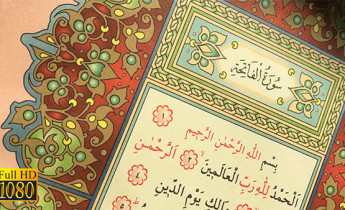 سُورَةُ الْفَاتِحَةِ
بِسْمِ اللّٰهِ الرَّحْمٰنِ الرَّحِيمِ ١
اَلْحَمْدُ لِلّٰهِ رَبِّ الْعَالَمِينَ ٢ اَلرَّحْمٰنِ
مَالِكِ يَوْمِ الدِّينِ ٤
Full HD
1080